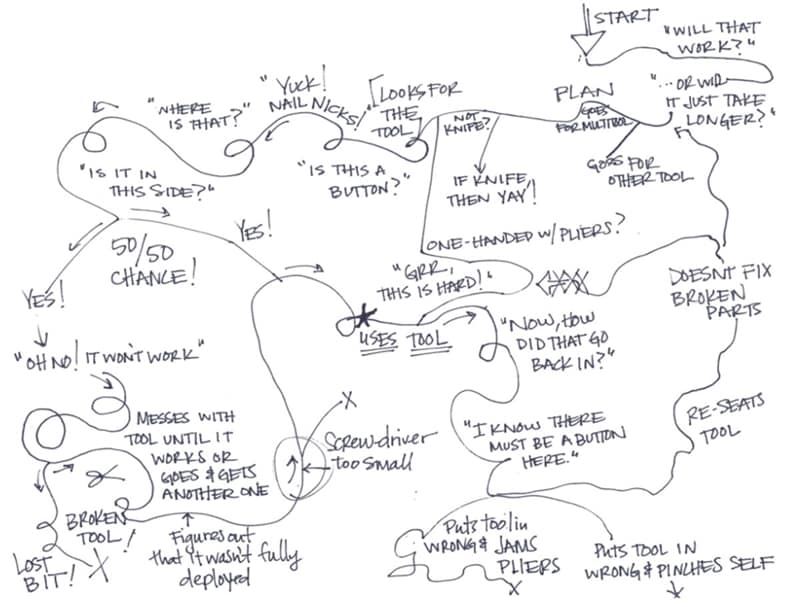 START
"WILL THAT
WORK?"
PLAN
"...OR WILL
IT JUST TAKE
LONGER?"
GOES
FOR MULTITOOL
GOES FOR
OTHER TOOL
NOT
KNIFE?
IF KNIFE,
THEN YAY!
[LOOKS FOR
THE
TOOL
"YUCK!
NAIL NICKS!
"IS THIS A
BUTTON?"
"WHERE
IS THAT?"
"IS IT IN
THIS SIDE?"
50/50
CHANCE!
YES!
YES!
ONE-HANDED W/PLIERS?
"GRR,
THIS IS HARD!"
USES TOOL
"NOW, HOW
DID THAT GO
BACK IN?"
DOESNT FIX
BROKEN
PARTS
RE-SEATS
TOOL
"I KNOW THERE
MUST BE A BUTTON
HERE."
"OH NO! IT WON'T WORK"
MESSES WITH
TOOL UNTIL IT
WORKS OR
GOES & GETS
ANOTHER ONE
X
Screw-driver
too small
BROKEN
TOOL!
LOST
BIT!
X
Figures out
that it wasn't fully
deployed
Puts tool in
WRONG & JAMS
PLIERS
X
PUTS TOOL IN
WRONG & PINCHES SELF